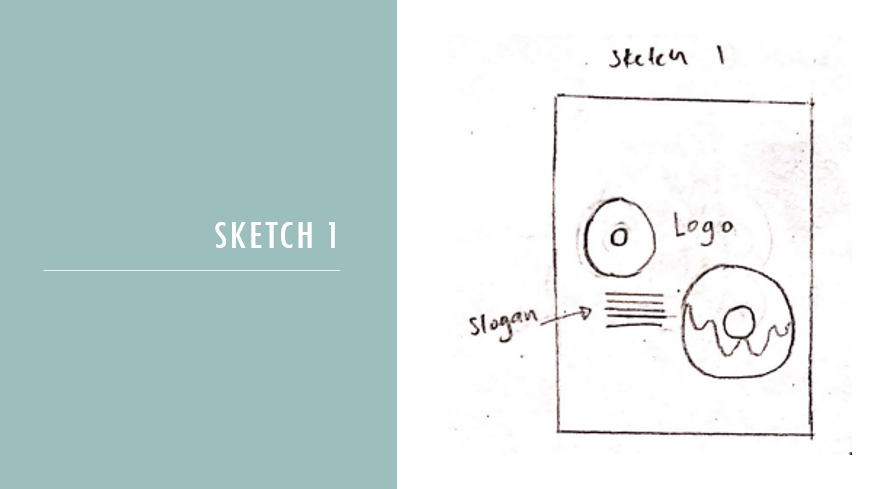 SKETCH 1
Sketch 1
Logo
Slogan